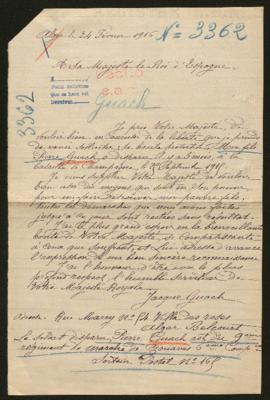 Alger le 24 Février 1916
Nº 3362
A Sa Majesté le Roi d'Espagne.
Guach
3362
Je prie Votre Majesté, de
vouloir bien m'excuser de la liberté que je prends
de venir solliciter Sa haute protection. Mon fils
Pierre Guach a disparu il y a 5 mois, à la
bataille de Champagne, le 25 Septembre 1915
Je vous supplie Votre Majesté de vouloir
bien user des moyens qui sont en Son pouvoir
pour en faire retrouver un pauvre fils.
Toutes les démarches que nous avons faites
jusqu'à ce jour sont restées sans résultat.
J'ai le plus grand espoir en la bienveillante
bonté de Votre Majesté, si compatissante
à ceux que souffrent et lui adresse d'avance
l'expression de ma bien sincère reconnaissance
J'ai l'honneur d'être avec le plus
profond respect, l'humble serviteur de
Votre Majesté Royale
Jacques Guach
Rue Marey Nº 14 Villa des roses
Alger Belcourt
Le soldat disparu Pierre Guach est du
régiment de marche de Zouaves 6ème Comp
Secteur Postal Nº 109